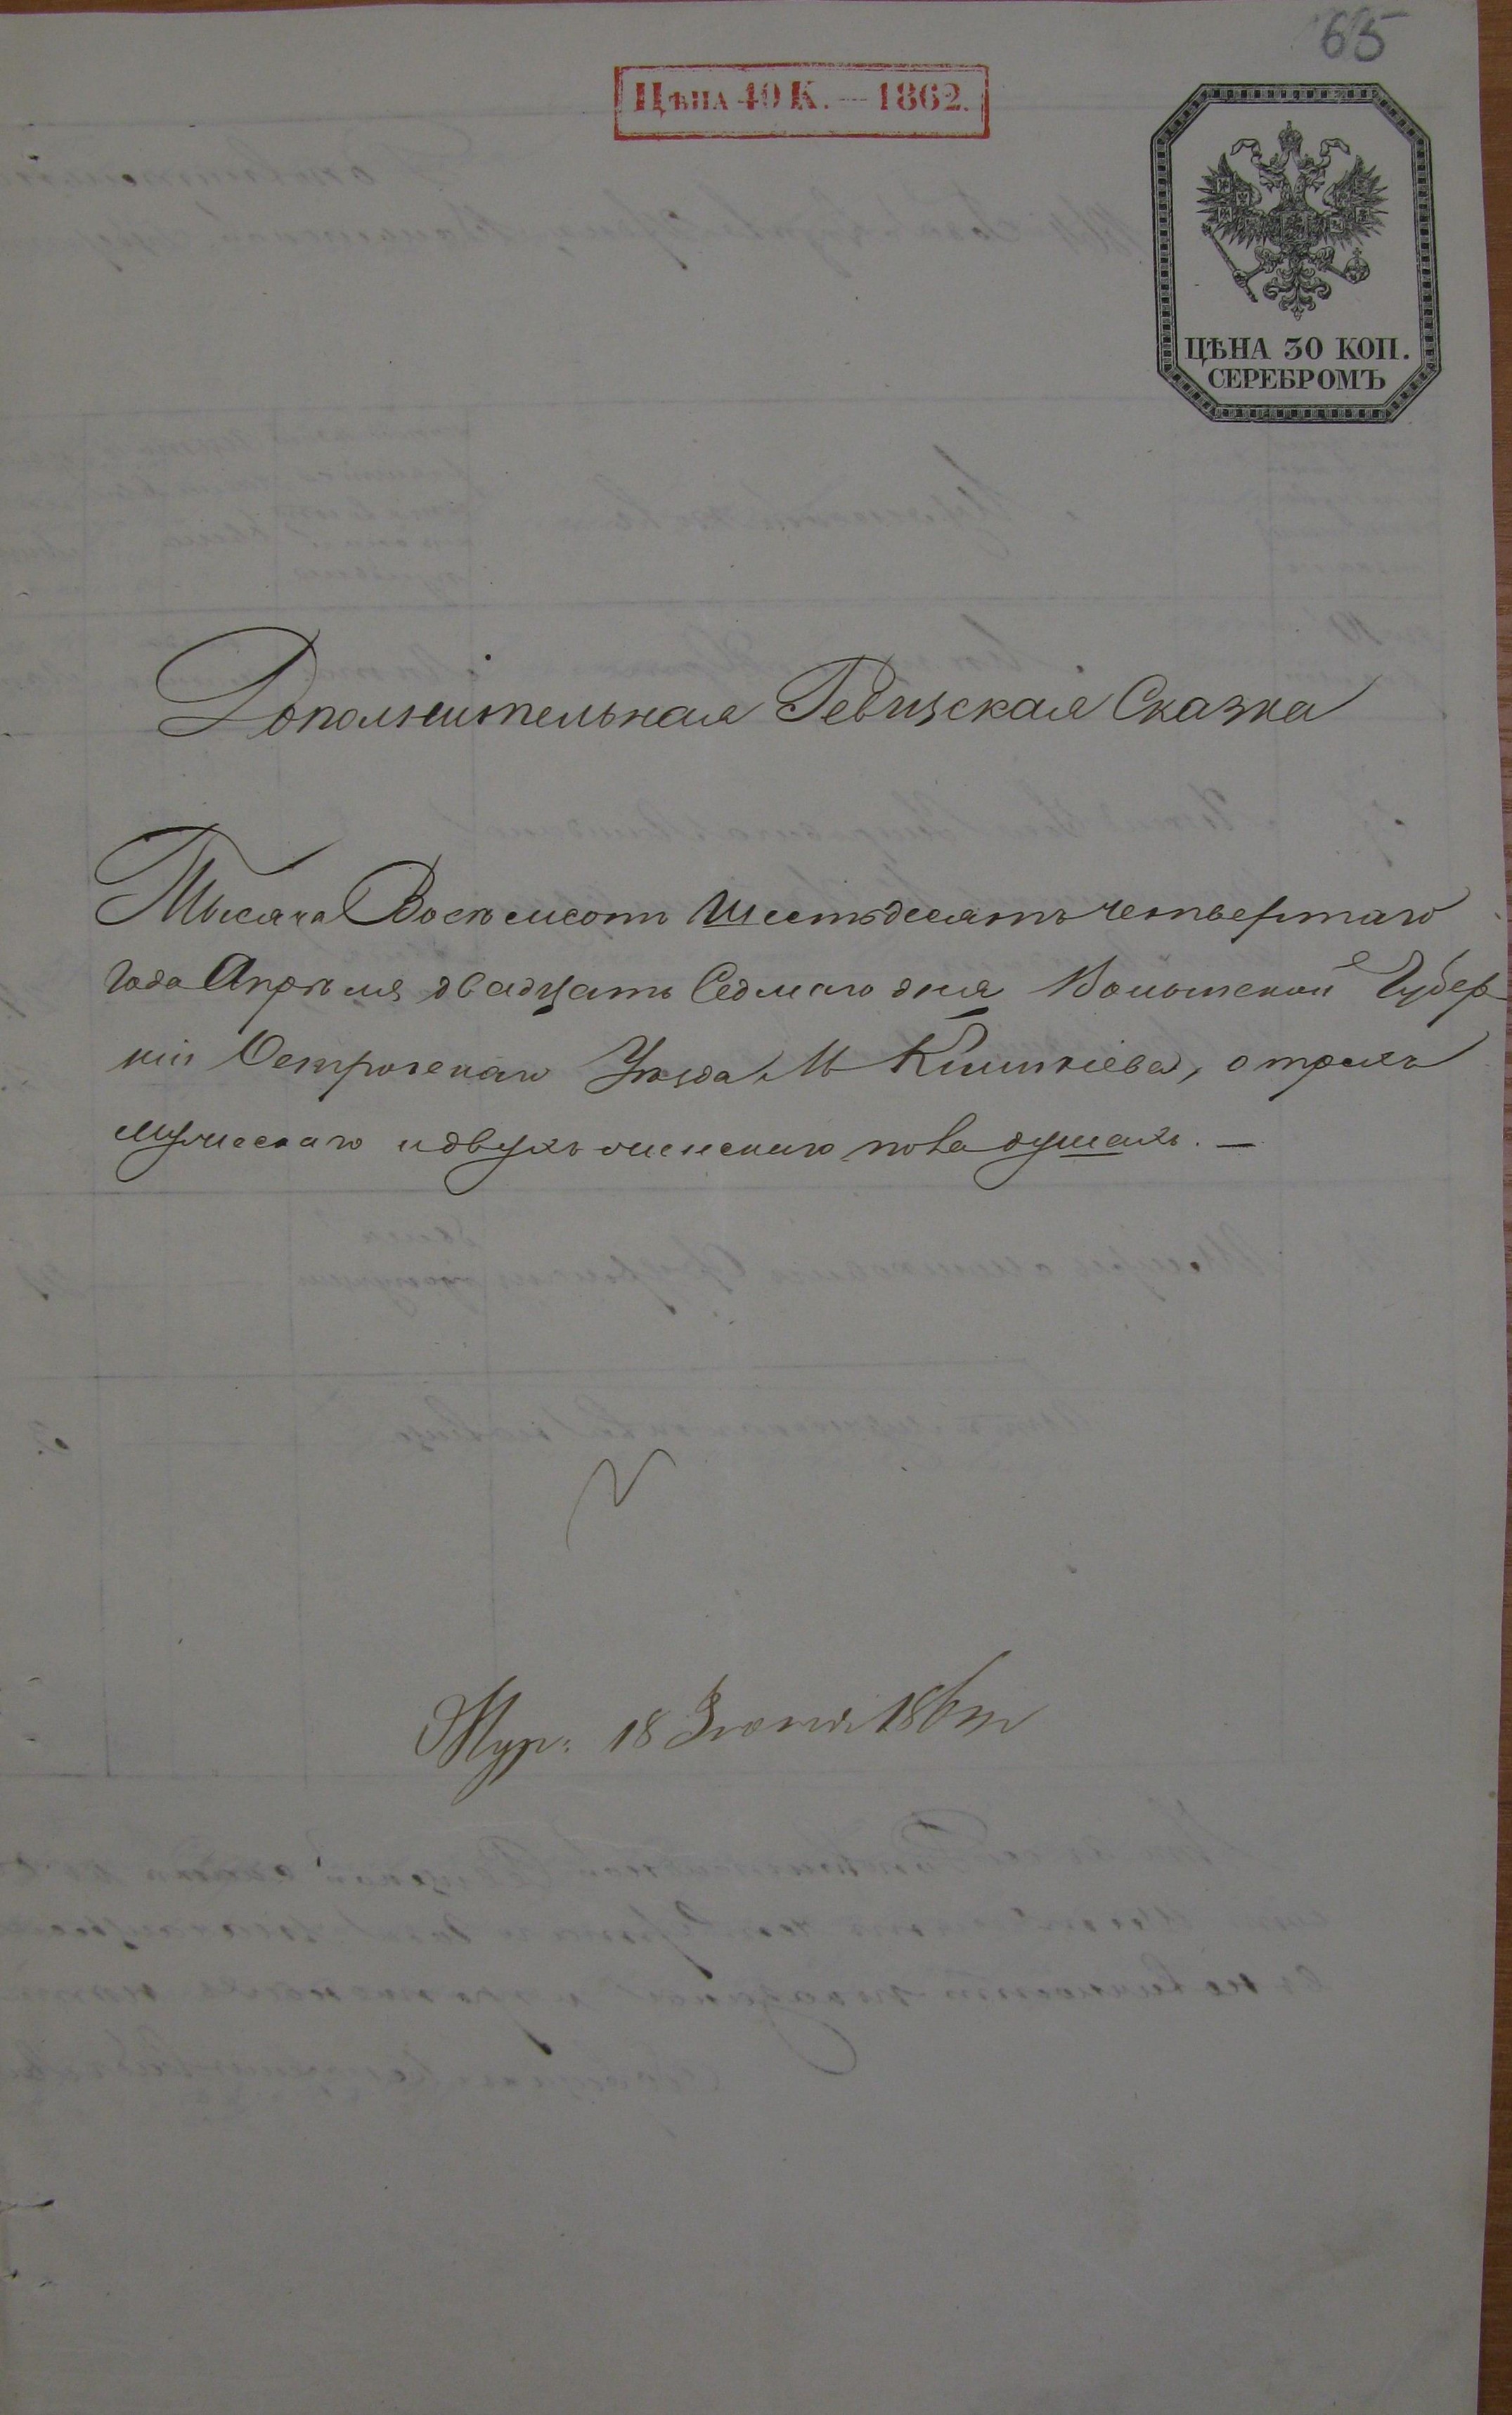 65
Цѣна 40 К. — 1862.
ЦѢНА 30 КОП.
СЕРЕБРОМЪ
Дополнительная Ревизская Сказка
Тысяча Восемсотъ Шестьдесятъ четвертаго
года Апрѣля двадцать Седмаго дня Волынской Губер-
ніи Острогскаго Уѣзда М. , о трехъ
мужескаго и двухъ женскаго пола душахъ. —
Жур: 18 Іюня 1864